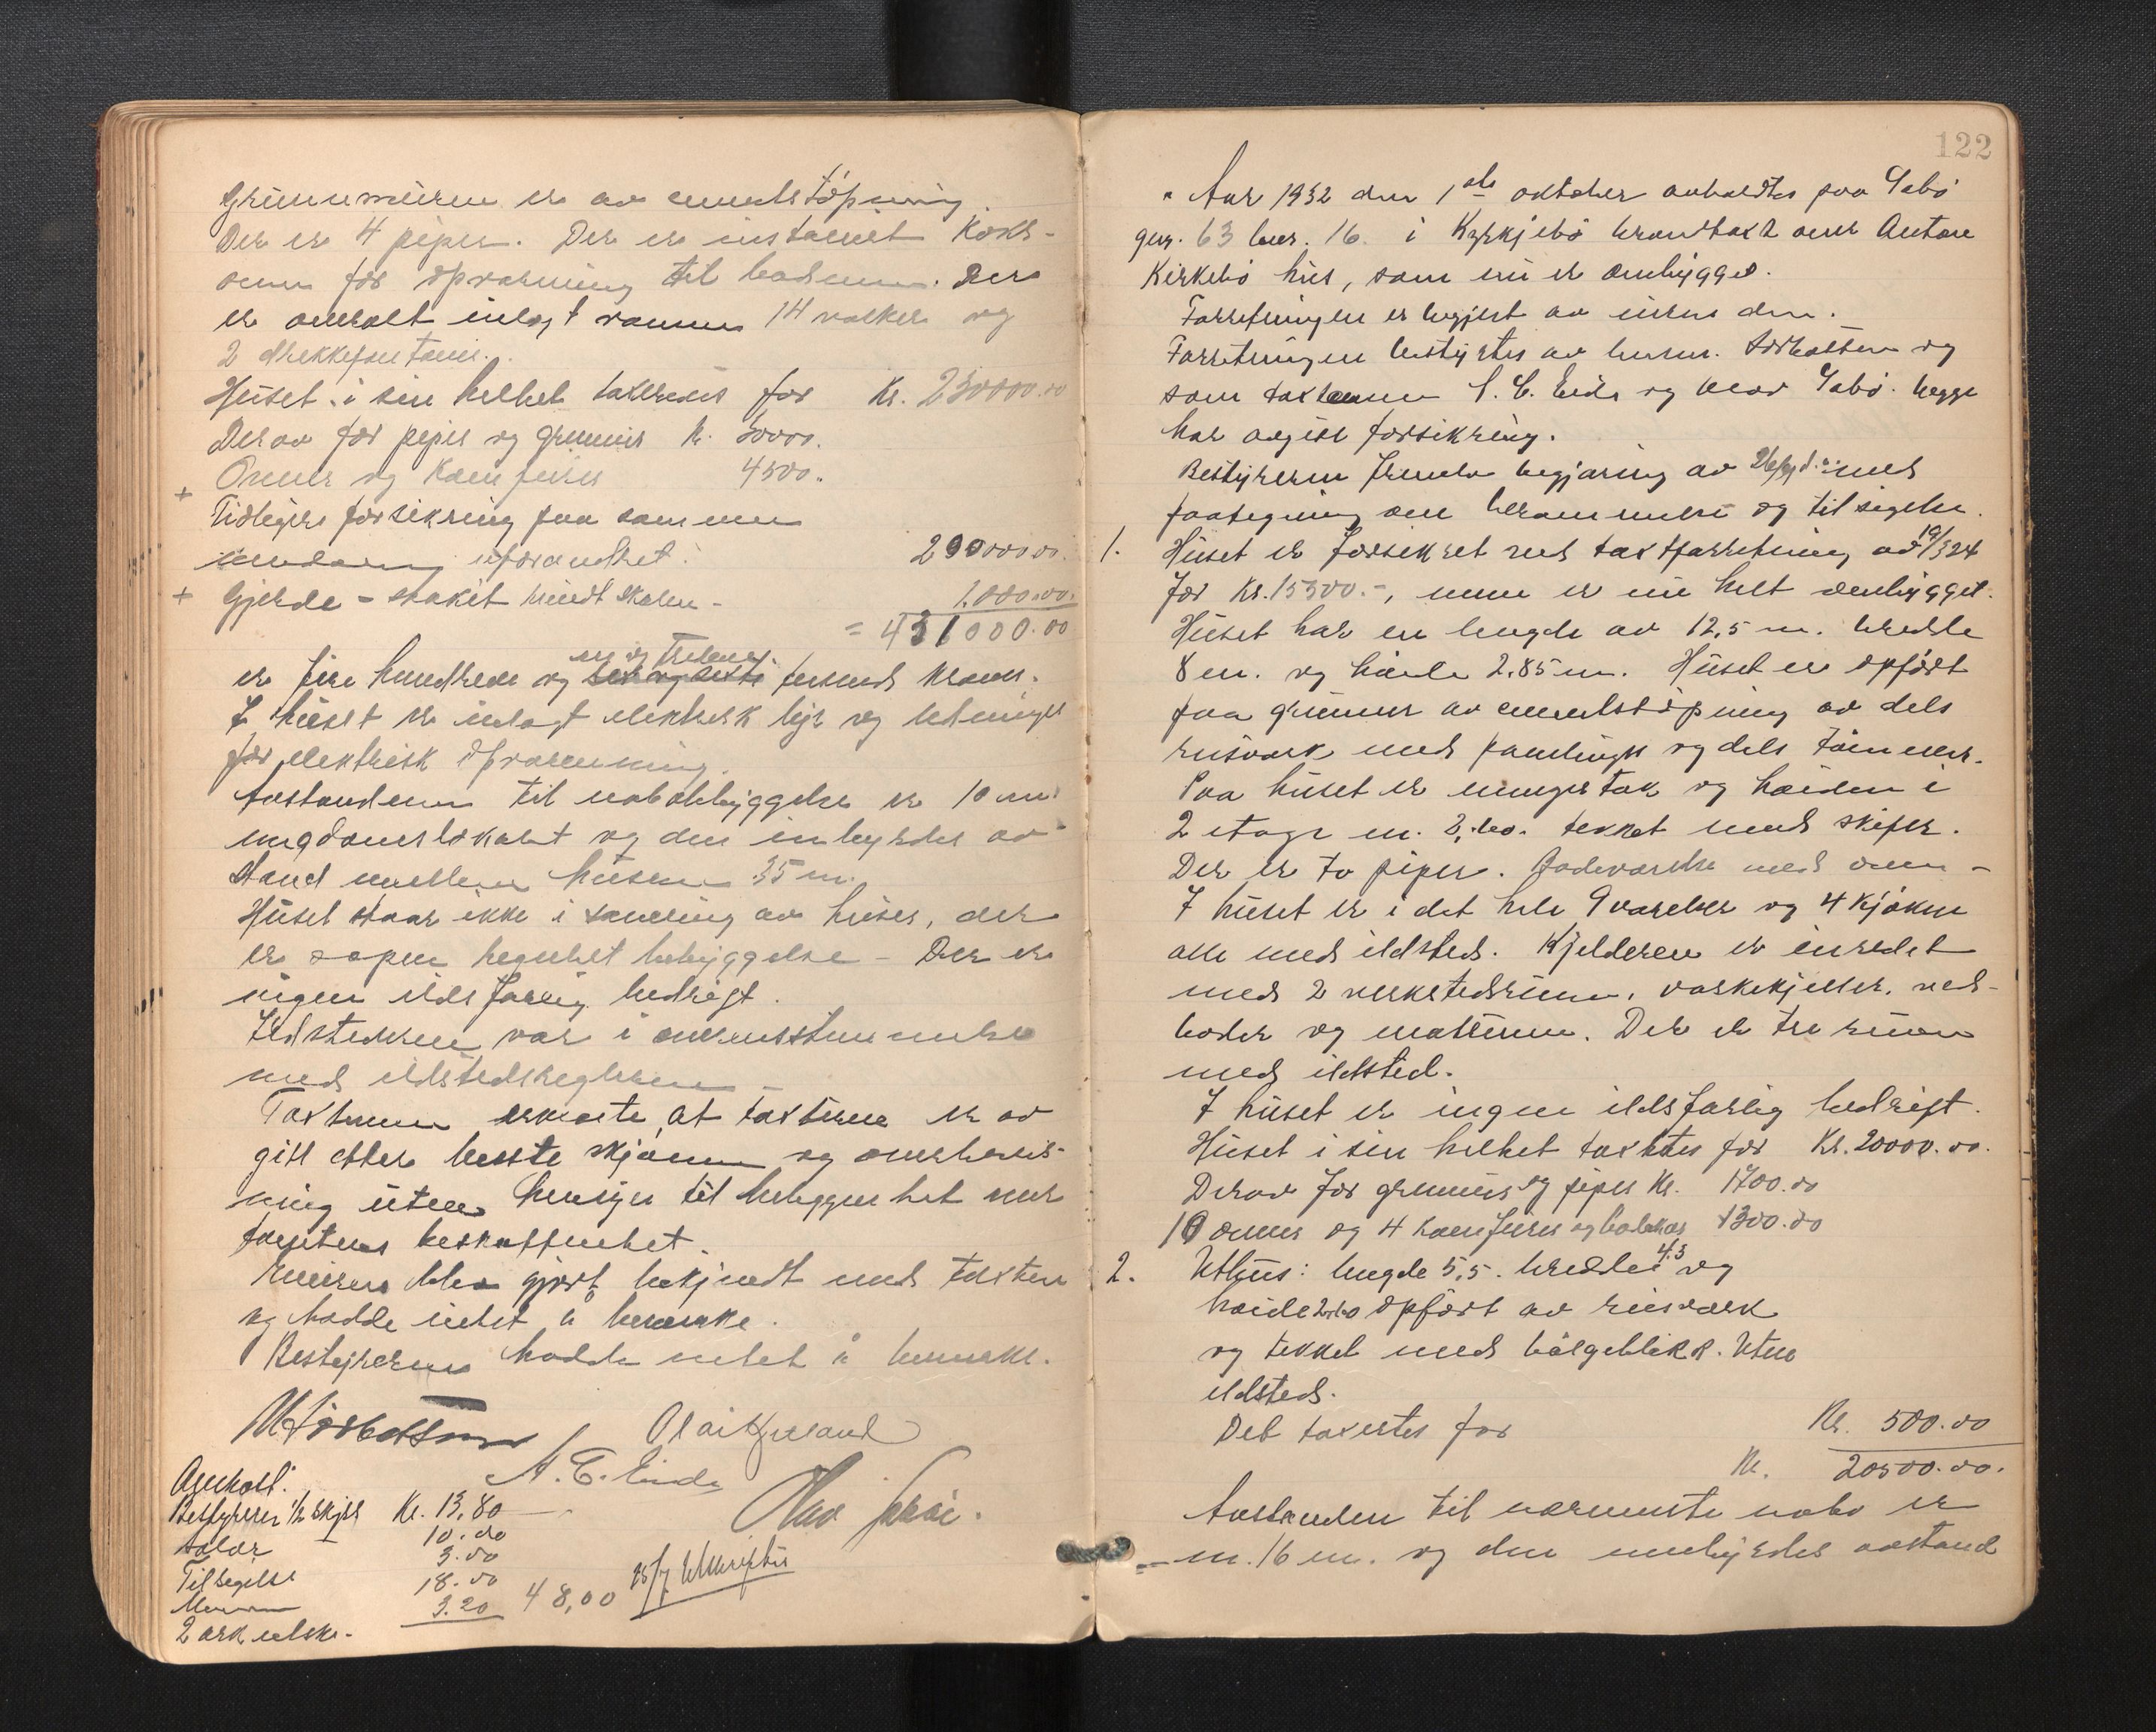 Grunnmuren er av cementstöpning.
Der er 4 piper. Der er instaleret Koks-
ovn for opvarming til badene. Der
er overalt inlagt vann 14 vasker og
2 drikkefontener.
Huset i sin helhet taxeredes for Kr. 230000.00
Derav for piper og grunmur Kr. 30000.
Ovner og Komfurer 4500.
+ Tidligere forsikring paa samme
uforandret. 200000.00
+ Gjerde - stakit rundt skolen - 1.000.00
= 431000.00
en og tredive
er fire hundrede og tusend kroner.
I huset er inlagt elektrisk lys og ledninger
for elektrisk opvarmning.
Avstanden til nabobebyggelse er 10 m.
ungdomslokalet og den inbyrdes av-
stand mellem husene 35 m.
Huset staar ikke i samling av huser, der
er aapen regulert bebyggelse - Der er
ingen ildsfarlig bedrift.
Ildstederne var i overensstemmelse
med ildstedsreglerne -
Taxtmenn erklærte, at taxterne er av
gitt etter beste skjönn og overbevis-
ning uten hensyn til beliggenhet eller
tomtens beskaffenhet.
Eieren blev gjort bekjendt med taxten
og hadde intet å bemerke.
Bestyreren hadde intet å bemerke.
A. E. Eide
Olav Sabö.
Omkost:
Bestyrerer 1/2 skyss Kr. 13,80
Salær 10.00
Tilsigelse 3.00
18.00
2 ark utskr. 3.20 48,00
122
Aar 1932 den 1ste oktober avholdtes paa Sabö
gnr. 63 bnr. 16. i Kyrkjebö brandtakst over Anton
Kirkebö hus, som nu er ombygget.
Forretningen er begjert av eieren den.
Forretningen bestyrtes av lensm. og
som taxtmenn A. E. Eide og Olav Sabö. begge
har avgitt forsikring.
Bestyreren fremla begjæring av med
paategning om berammelse og tilsigelse.
1. Huset er forsikret ved taxtforretning av 19/3 24
for Kr. 15300.-, men er nu helt ombygget.
Huset har en lengde av 12,5 m. bredde
8 m. og höide 2.85 m. Huset er opfört
paa grunmur av cementstöpning av dels
reisverk med panelinger og dels tömmer.
Paa huset er mungertak og höiden i
2 etage er tekket med skifer.
Der er to piper. Badeværelse med ovn -
I huset er i det hele 9 værelser og 4 kjökken
alle med ildsted. Kjelderen er inredet
med 2 verkstedsrum, vaskekjeller, ved-
boder og matrum. Der er tre rum
med ildsted.
I huset er ingen ildsfarlig bedrift.
Huset i sin helhet taxtes for Kr. 20000.00.
Derav for grunmur og piper Kr. 1700.00
10 ovner og 4 komfurer og badekar 1300.00
2. Uthus: lengde 5,5. bredde 4.3 og
höide opfört av reisverk
og tekket med bölgeblikk. Uten
ildsted.
Det taxertes for Kr. 500.00
Kr. 20500.00.
Avstanden til nærmeste nabo er
m. 16 m. og den innbyrdes avstand